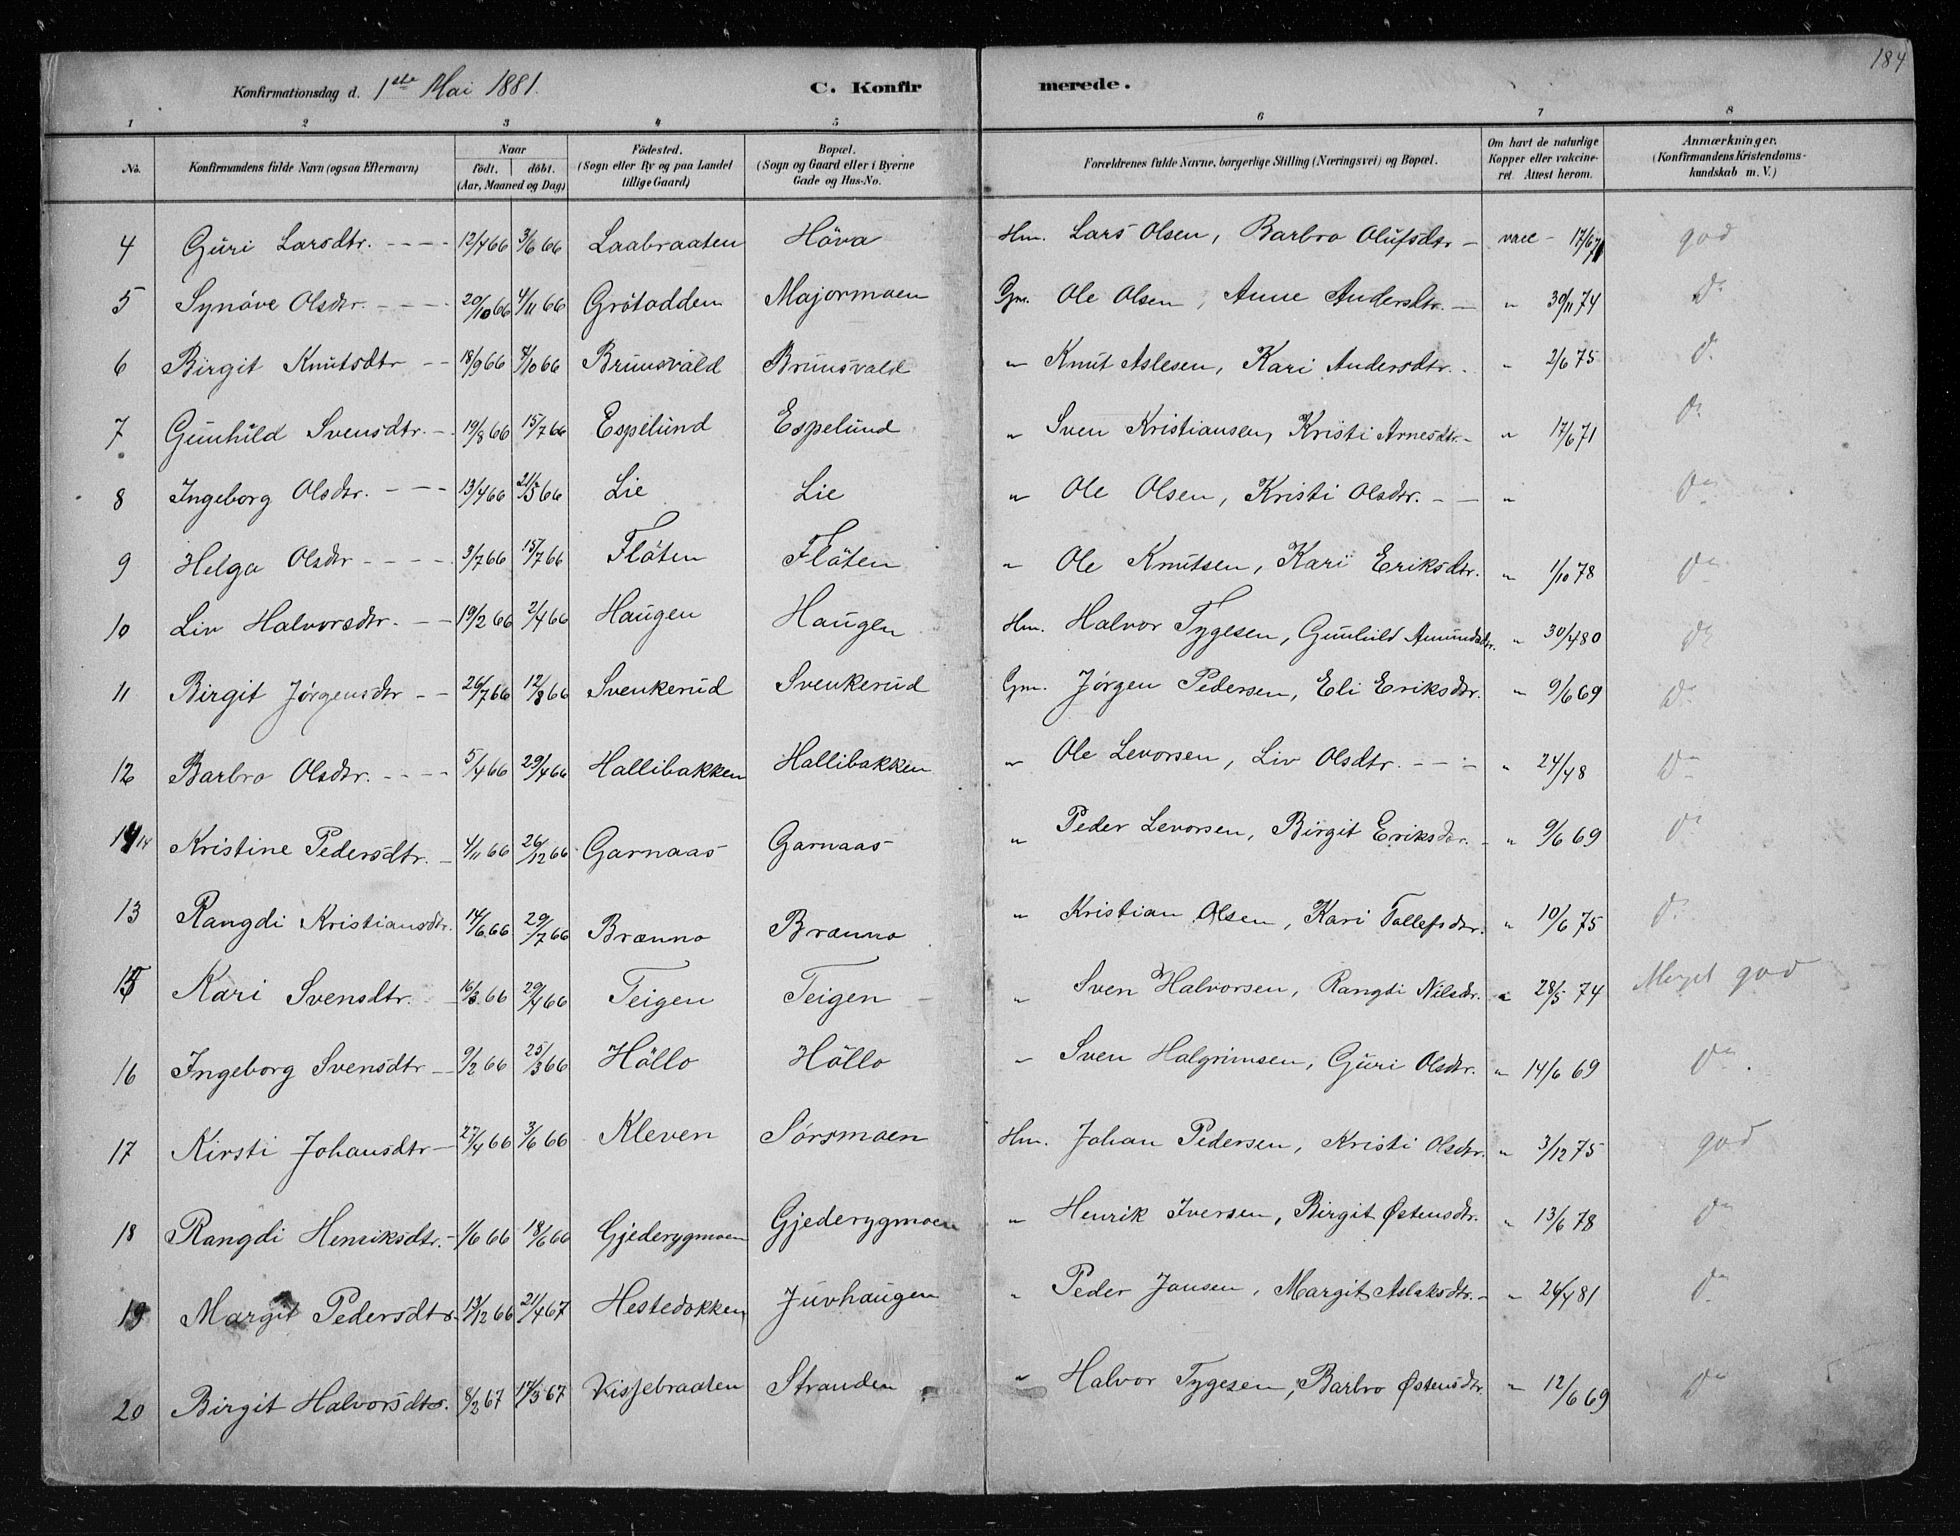 184
Konfirmationsdag d. 1ste Mai 1881. C. Konfirmerede.
1 2 3 4 5 6 7 8
No. Konfirmandens fulde Navn (ogsaa Efternavn) Naar födt. döbt. (Aar, Maaned og Dag) Födested. (Sogn eller By og paa Landet tillige Gaard) Bopæl. (Sogn og Gaard eller i Byerne Gade og Hus-No. Forældrenes fulde Navne, borgerlige Stilling (Næringsvei) og Bopæl. Om havt de naturlige Kopper eller vakcineret. Attest herom. Anmærkninger. (Konfirmandens Kristendomskundskab m. V.)
4 Guri Larsdtr. - - - - 12/4 66 3/6 66 Laabraaten Höva Hm. Lars Olsen, Barbro Olufsdtr - vacc - 17/6 71 god
5 Synöve Olsdtr. - - - - 20/10 66 4/11 66 Grötodden Majormoen Gm. Ole Olsen, Anne Andersdtr. - " 30/11 74 Do
6 Birgit Knutsdtr - - 18/9 66 7/10 66 Bruusvald Bruusvald " Knut Aslesen, Kari Andersdtr. . " 2/6 75 Do
7 Gunhild Svensdtr. - 19/8 66 15/7 66 Espelund Espelund " Sven Kristiansen, Kristi Arnesdtr. - " 17/6 71 Do
8 Ingeborg Olsdtr. - - - 13/4 66 21/5 66 Lie Lie " Ole Olsen, Kristi Olsdtr. - - " Do
9 Helga Olsdtr - - - - 3/7 66 15/7 66 Flöten Flöten " Ole Knutsen, Kari Eriksdtr. " 1/10 78 Do
10 Liv Halvorsdtr. - - 19/2 66 2/4 66 Haugen Haugen Hm. Halvor Tygesen, Gunhild Amundsdtr. " 30/4 80 Do
11 Birgit Jørgensdtr - - 26/7 66 12/8 66 Svenkerud Svenkerud Gm. Jørgen Pedersen, Eli Eriksdtr. " 9/6 69 Do
12 Barbro Olsdtr. - - - - 5/4 66 29/4 66 Hallibakken Hallibakken " Ole Levorsen, Liv Olsdtr. - - - " 24/48 Do
14 Kristine Pedersdtr. - 4/11 66 26/12 66 Garnaas Garnaas " Peder Levorsen, Birgit Eriksdtr. - " 9/6 69 Do
13 Rangdi Kristiansdtr. 14/6 66 29/7 66 Brænno Brænno " Kristian Olsen, Kari Tollefsdtr. " 10/6 75 Do
15 Kari Svensdtr. 16/3 66 29/4 66 Teigen Teigen " Sven Halvorsen, Rangdi Nilsdtr. " 28/5 74 Meget god
16 Ingeborg Svensdtr - 9/2 66 25/3 66 Höllo Höllo " Sven Halgrimsen, Guri Olsdtr. " 14/6 69 Do
17 Kirsti Johansdtr - 27/4 66 3/6 66 Kleven Sörsmoen Hm. Johan Pedersen, Kristi Olsdtr. " 3/12 75 god
18 Rangdi Henriksdtr. - 1/6 66 18/6 66 Gjederygmoen Gjederygmoen " Henrik Iversen, Birgit Østensdtr. " 13/6 78 Do
19 Margit Pedersdtr. 13/12 66 21/4 67 Hestedokken Juvhaugen " Peder Jansen, Margit Aslaksdtr. - " 26/4 81 Do
20 Birgit Halvorsdtr. 8/2 67 17/3 67 Visjebraaten Stranden " Halvor Tygesen, Barbro Østensdtr. " 12/6 69 Do